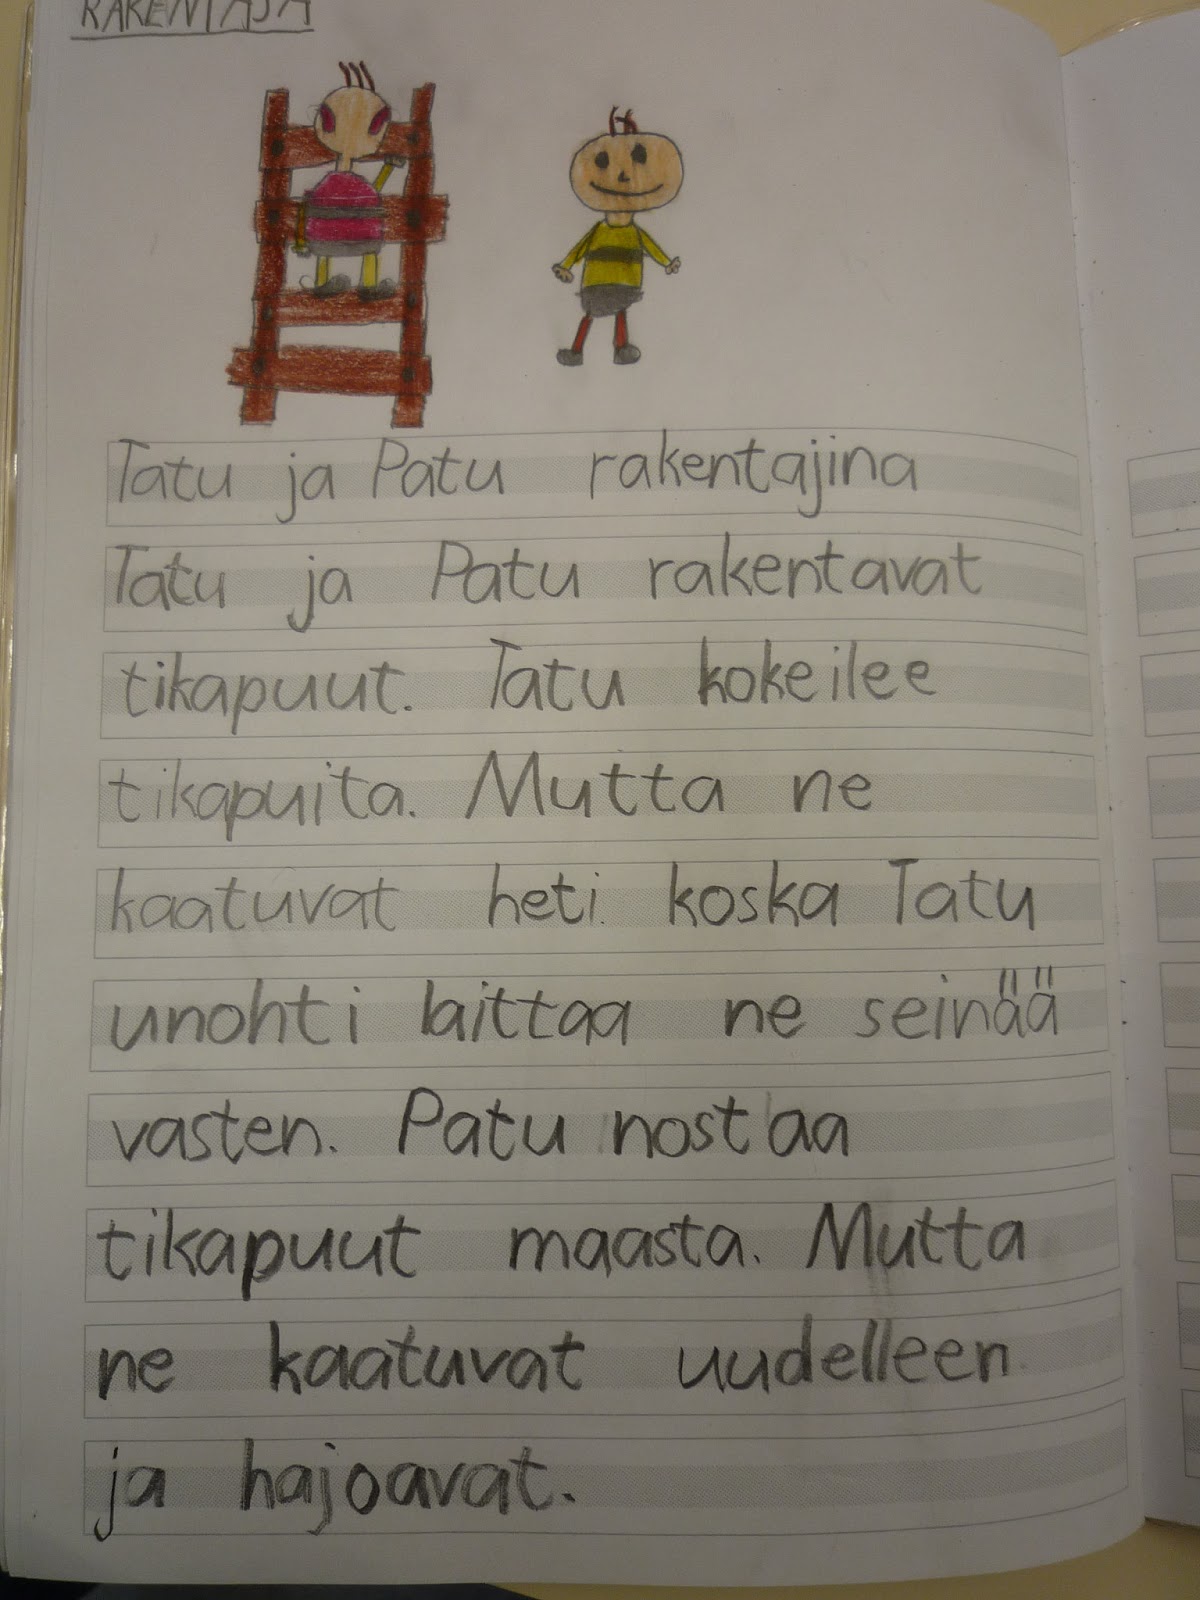 RAKENTAJA
Tatu ja Patu rakentajina
Tatu ja Patu rakentavat
tikapuut. Tatu kokeilee
tikapuita. Mutta ne
kaatuvat heti koska Tatu
unohti laittaa ne seinää
vasten. Patu nostaa
tikapuut maasta. Mutta
ne kaatuvat uudelleen
ja hajoavat.